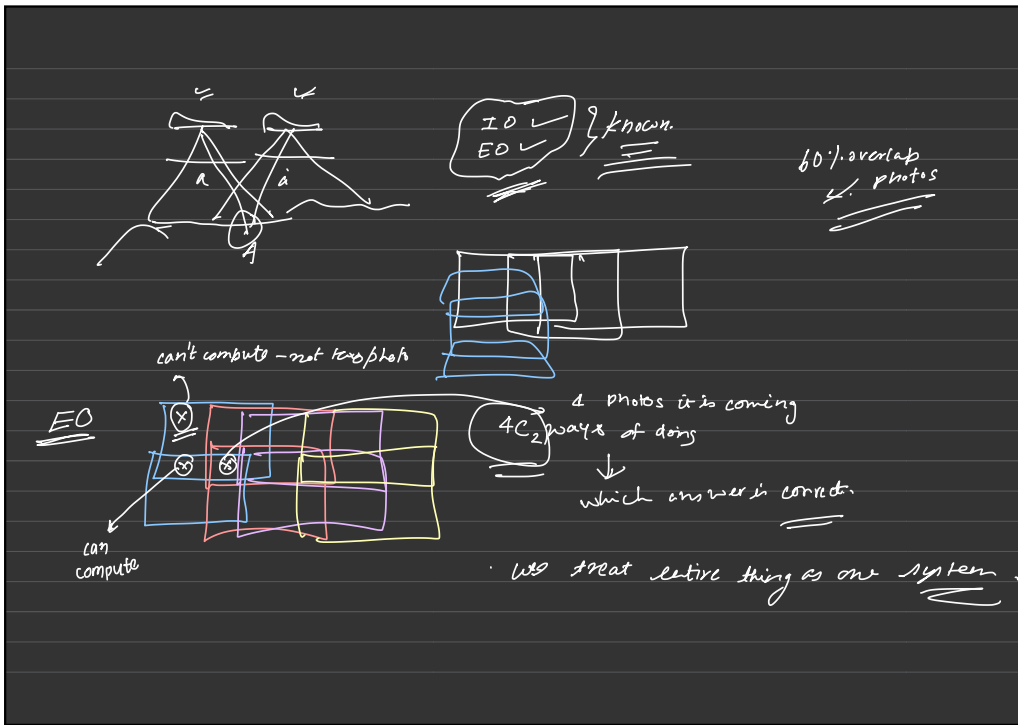 IO ✓
EO ✓
} known.
60% overlap
✓ photos
a
a'
A
can't compute - not two photo
EO
4 photos it is coming
4C2 ways of doing
↓
which answer is correct.
can
compute
treat entire thing as one system.